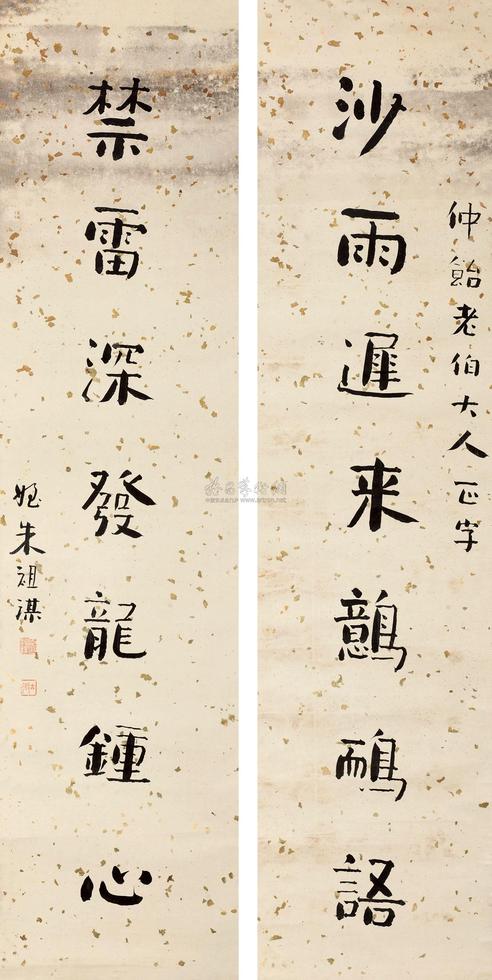 仲飴老伯大人正字
沙雨遲来鷾鴯語
禁雷深發龍鍾心
姪朱祖謀